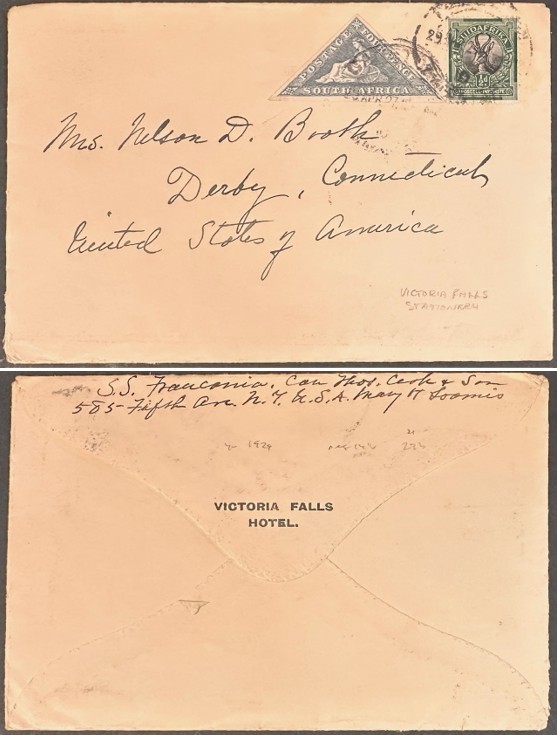 POSTAGE FOUR PENCE
SOUTH AFRICA
SUIDAFRIKA
½d
29
APR 27
Mrs. Nelson D. Booth
Derby, Connecticut
United States of America
VICTORIA FALLS
STATIONERY
S.S. Franconia, Care Thos. Cook & Son
585 Fifth Ave. N.Y. U.S.A. Mary H Loomis
VICTORIA FALLS
HOTEL.